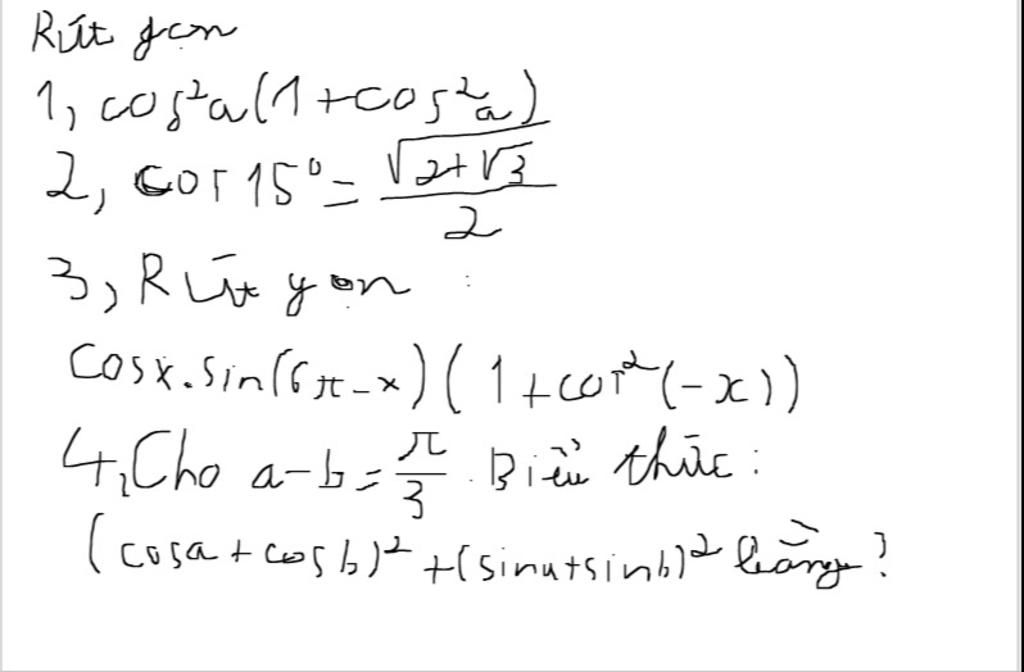 Rút gọn
1, cos²a(1+cos²a)
2, cos 15° = √(2+√3)/2
3, Rút gọn :
cosx.sin(6π-x)(1+cot²(-x))
4, Cho a-b=π/3. Biểu thức:
(cosa+cosb)²+(sina+sinb)² bằng?